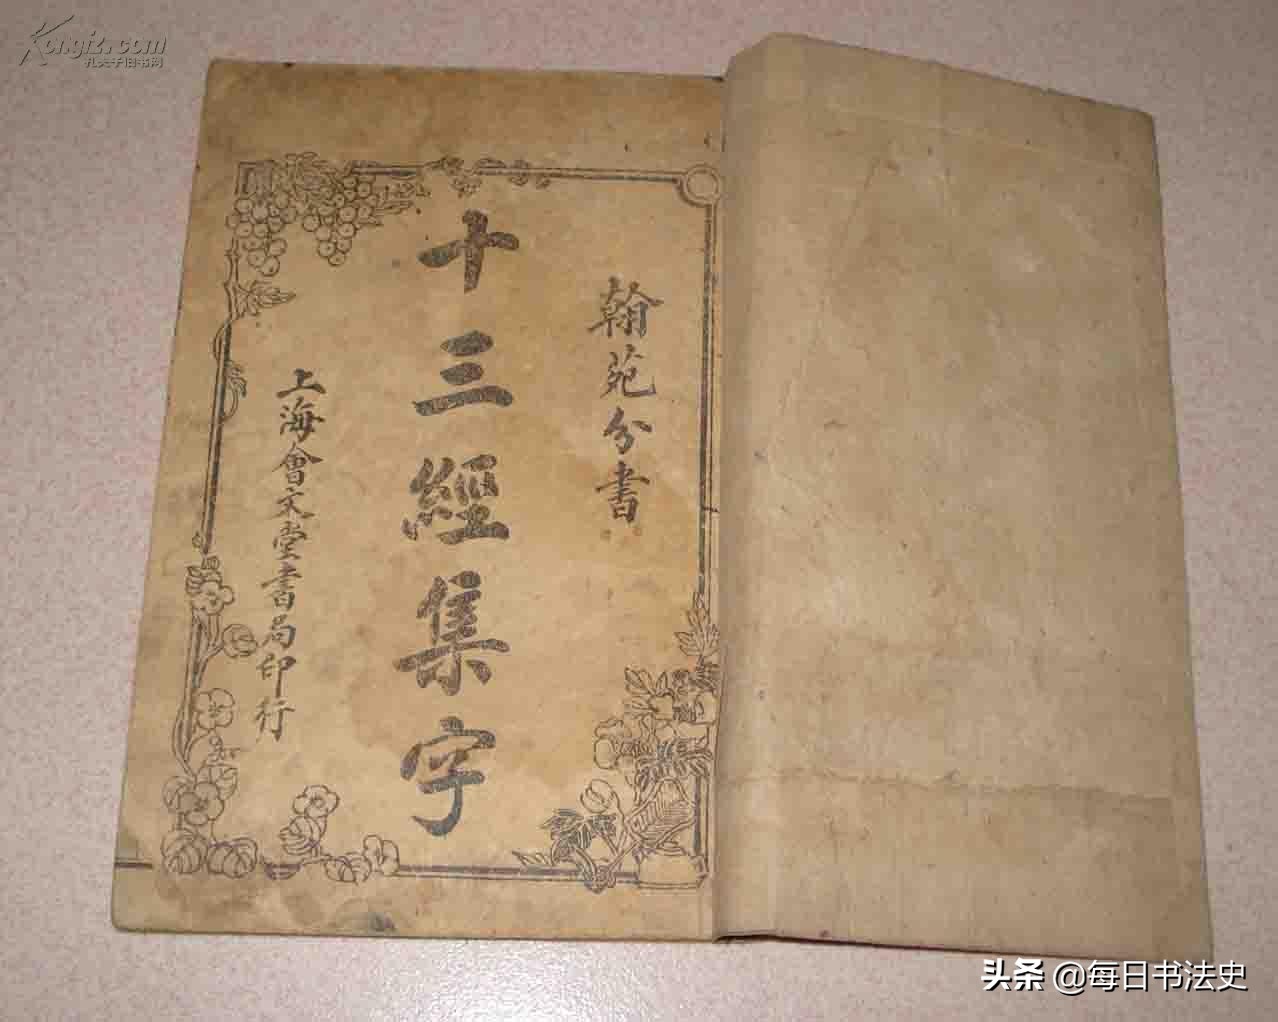 Kongfz.com
孔夫子旧书网
翰苑分書
十三經集字
上海會文堂書局印行
头条 @每日书法史